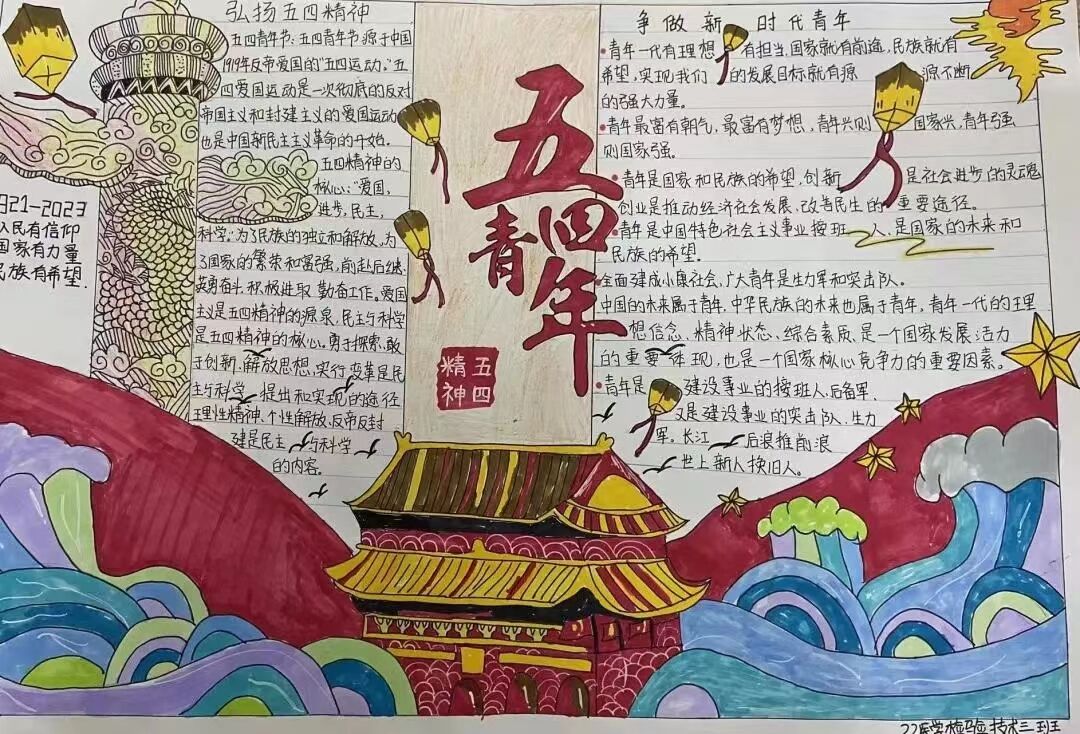 弘扬五四精神
五四青年节:五四青年节源于中国
1919年反帝爱国的“五四运动,”五
四爱国运动是一次彻底的反对
帝国主义和封建主义的爱国运动
也是中国新民主主义革命的开始。
五四精神的
核心:“爱国,
进步,民主,
科学。”为了民族的独立和解放、为
了国家的繁荣和富强,前赴后继、
英勇奋斗、积极进取 勤奋工作。爱国
主义是五四精神的源泉,民主与科学
是五四精神的核心。勇于探索、敢
于创新、解放思想、实行变革是民
主与科学 提出和实现的途径
理性精神、个性解放、反帝反封
建是民主 与科学
的内容。
1921-2023
人民有信仰
国家有力量
民族有希望.
五四青年
五四
精神
争做新时代青年
青年一代有理想 有担当,国家就有前途,民族就有
希望,实现我们 的发展目标就有源 源不断
的强大力量。
青年最富有朝气,最富有梦想,青年兴则 国家兴,青年强
则国家强。
青年是国家和民族的希望,创新 是社会进步的灵魂
创业是推动经济社会发展、改善民生的 重要途径。
青年是中国特色社会主义事业接班 人,是国家的未来和
民族的希望。
全面建成小康社会,广大青年是生力军和突击队。
中国的未来属于青年,中华民族的未来也属于青年,青年一代的理
想信念、精神状态、综合素质,是一个国家发展活力
的重要体现,也是一个国家核心竞争力的重要因素。
青年是 建设事业的接班人,后备军,
又是建设事业的突击队、生力
军。长江 后浪推前浪
世上新人换旧人。
22医学检验技术三班